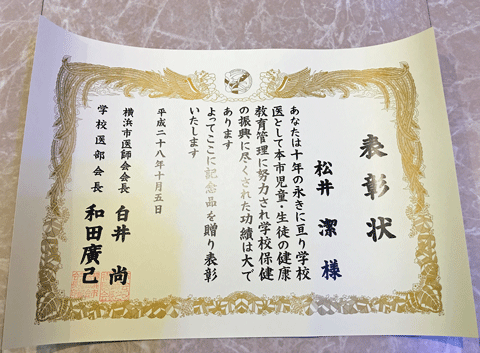 表彰状
松井 潔 様
あなたは十年の永きに亘り学校
医として本市児童・生徒の健康
教育管理に努力され学校保健
の振興に尽くされた功績は大で
あります
よってここに記念品を贈り表彰
いたします
平成二十八年十月五日
横浜市医師会会長 白井 尚
学校医部会長 和田廣己